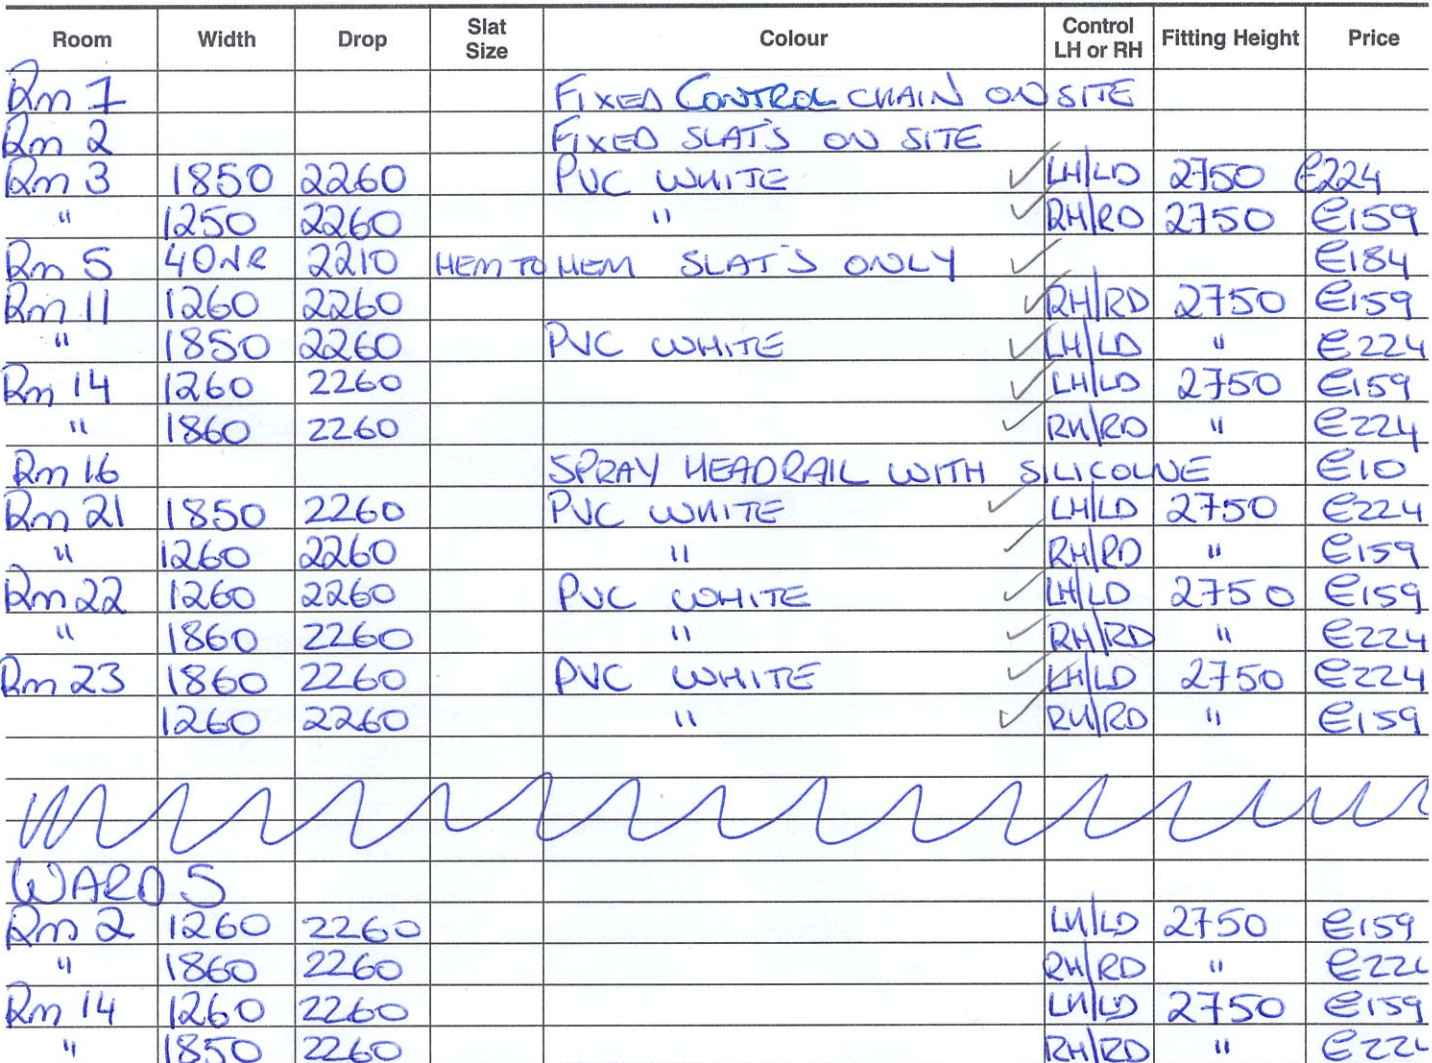 Room Width Drop Slat Size Colour Control LH or RH Fitting Height Price
Rm 7 FIXED CONTROL CHAIN ON SITE
Rm 2 FIXED SLAT'S ON SITE
Rm 3 1850 2260 PVC WHITE ✓ LH/LD 2750 €224
" 1250 2260 " ✓ RH/RD 2750 €159
Rm 5 40NR 2210 HEM TO HEM SLAT'S ONLY ✓ €184
Rm 11 1260 2260 ✓ RH/RD 2750 €159
" 1850 2260 PVC WHITE ✓ LH/LD " €224
Rm 14 1260 2260 ✓ LH/LD 2750 €159
" 1860 2260 ✓ RH/RD " €224
Rm 16 SPRAY HEADRAIL WITH SILICOLNE €10
Rm 21 1850 2260 PVC WHITE ✓ LH/LD 2750 €224
" 1260 2260 " ✓ RH/RD " €159
Rm 22 1260 2260 PVC WHITE ✓ LH/LD 2750 €159
" 1860 2260 " ✓ RH/RD " €224
Rm 23 1860 2260 PVC WHITE ✓ LH/LD 2750 €224
1260 2260 " ✓ RH/RD " €159
WARD 5
Rm 2 1260 2260 LH/LD 2750 €159
" 1860 2260 RH/RD " €224
Rm 14 1260 2260 LH/LD 2750 €159
" 1850 2260 RH/RD " €224